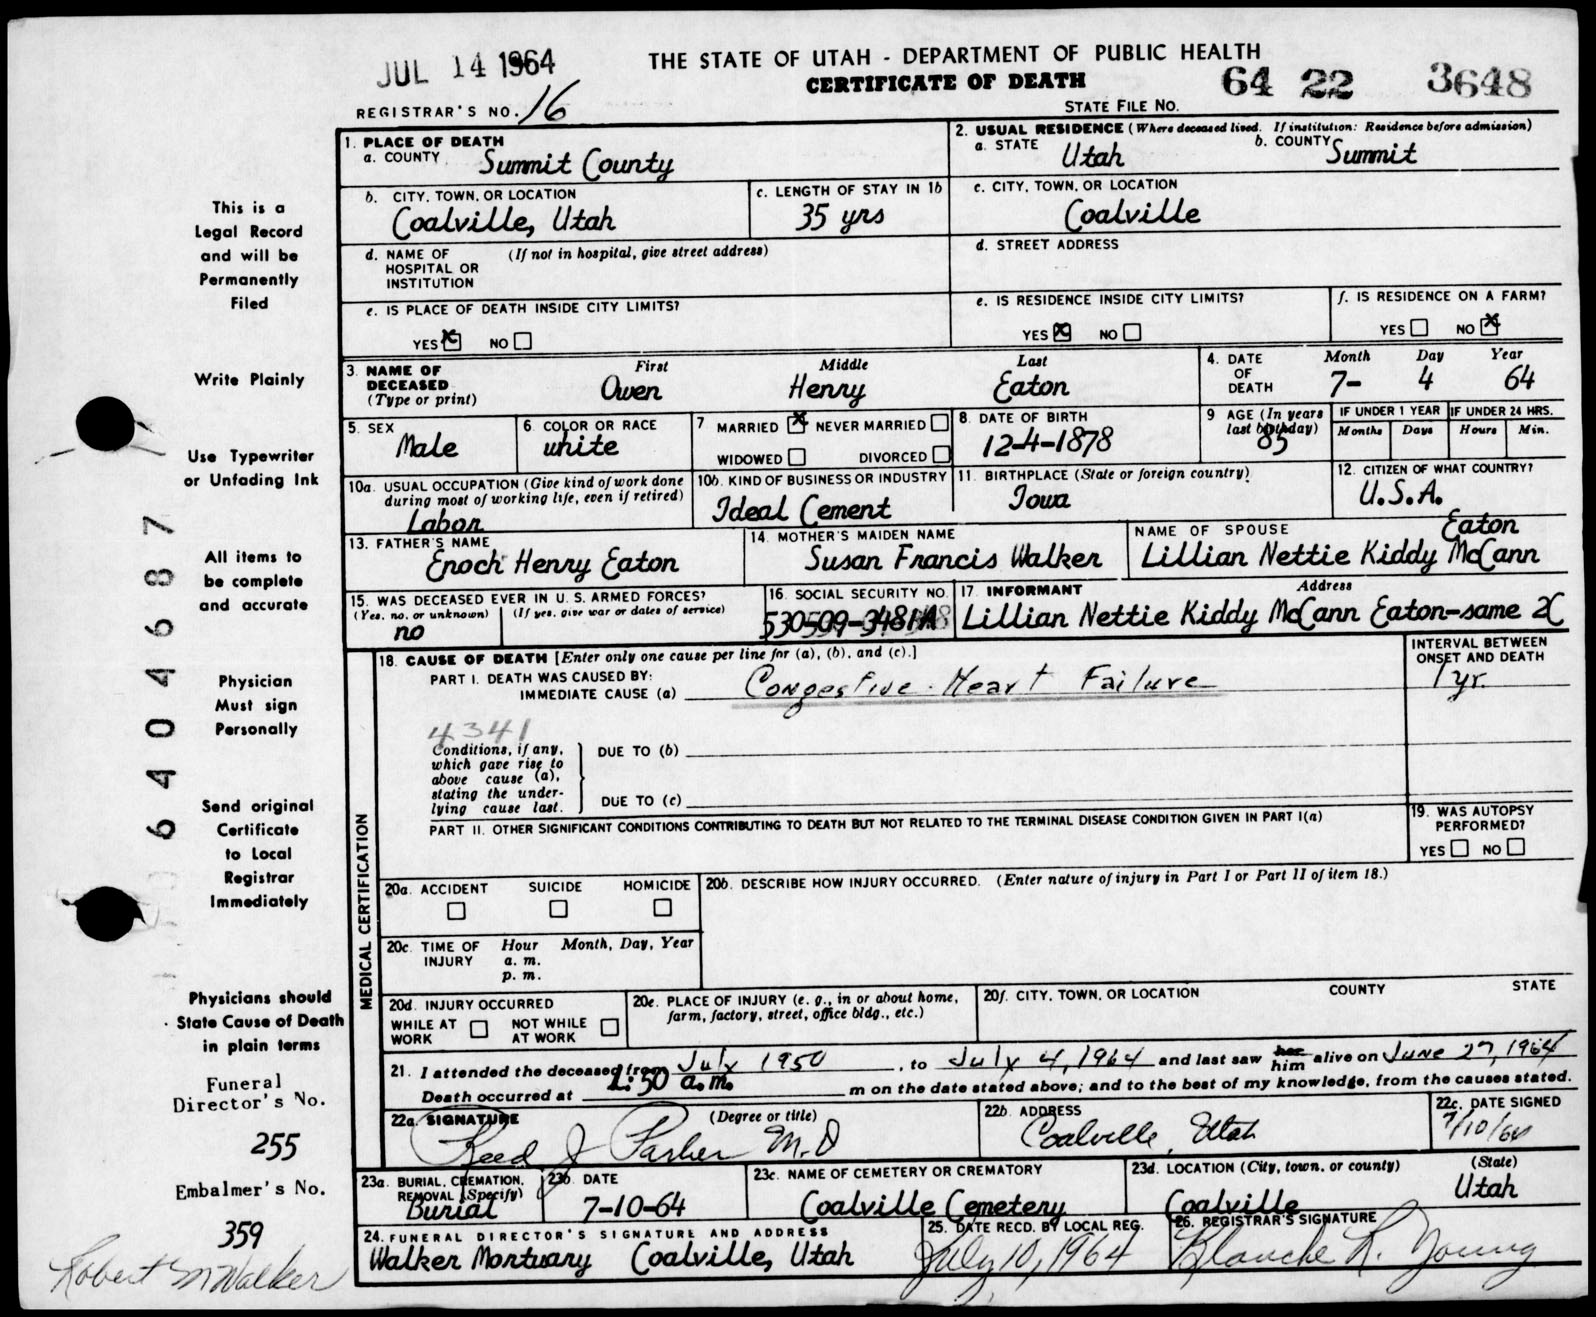 JUL 14 1964
THE STATE OF UTAH - DEPARTMENT OF PUBLIC HEALTH
CERTIFICATE OF DEATH
64 22 3648
REGISTRAR'S NO. 16
STATE FILE NO.
1. PLACE OF DEATH
a. COUNTY Summit County
2. USUAL RESIDENCE (Where deceased lived. If institution: Residence before admission)
a. STATE Utah b. COUNTY Summit
b. CITY, TOWN, OR LOCATION
Coalville, Utah
c. LENGTH OF STAY IN 1b
35 yrs
c. CITY, TOWN, OR LOCATION
Coalville
d. NAME OF HOSPITAL OR INSTITUTION (If not in hospital, give street address)
d. STREET ADDRESS
e. IS PLACE OF DEATH INSIDE CITY LIMITS?
YES X NO
e. IS RESIDENCE INSIDE CITY LIMITS?
YES X NO
f. IS RESIDENCE ON A FARM?
YES NO X
3. NAME OF DECEASED (Type or print)
First Middle Last
Owen Henry Eaton
4. DATE OF DEATH
Month Day Year
7- 4 64
5. SEX
Male
6. COLOR OR RACE
white
7 MARRIED X NEVER MARRIED
WIDOWED DIVORCED
8. DATE OF BIRTH
12-4-1878
9 AGE (In years last birthday)
85
IF UNDER 1 YEAR
Months Days
IF UNDER 24 HRS.
Hours Min.
10a. USUAL OCCUPATION (Give kind of work done during most of working life, even if retired)
Labor
10b. KIND OF BUSINESS OR INDUSTRY
Ideal Cement
11. BIRTHPLACE (State or foreign country)
Iowa
12. CITIZEN OF WHAT COUNTRY?
U.S.A.
13. FATHER'S NAME
Enoch Henry Eaton
14. MOTHER'S MAIDEN NAME
Susan Francis Walker
NAME OF SPOUSE
Eaton
Lillian Nettie Kiddy McCann
15. WAS DECEASED EVER IN U.S. ARMED FORCES?
(Yes, no, or unknown) (If yes, give war or dates of service)
no
16. SOCIAL SECURITY NO.
17. INFORMANT Address
Lillian Nettie Kiddy McCann Eaton-same 2C
MEDICAL CERTIFICATION
18. CAUSE OF DEATH [Enter only one cause per line for (a), (b), and (c).]
PART I. DEATH WAS CAUSED BY:
IMMEDIATE CAUSE (a) Congestive Heart Failure
INTERVAL BETWEEN ONSET AND DEATH
1 yr.
4341
Conditions, if any, which gave rise to above cause (a), stating the underlying cause last.
DUE TO (b)
DUE TO (c)
PART II. OTHER SIGNIFICANT CONDITIONS CONTRIBUTING TO DEATH BUT NOT RELATED TO THE TERMINAL DISEASE CONDITION GIVEN IN PART I(a)
19. WAS AUTOPSY PERFORMED?
YES NO
20a. ACCIDENT SUICIDE HOMICIDE
20b. DESCRIBE HOW INJURY OCCURRED. (Enter nature of injury in Part I or Part II of item 18.)
20c. TIME OF INJURY Hour Month, Day, Year
a. m.
p. m.
20d. INJURY OCCURRED
WHILE AT WORK NOT WHILE AT WORK
20e. PLACE OF INJURY (e. g., in or about home, farm, factory, street, office bldg., etc.)
20f. CITY, TOWN, OR LOCATION COUNTY STATE
21. I attended the deceased from July 1950, to July 4, 1964 and last saw her him alive on June 27, 1964
Death occurred at 1:50 a.m. m on the date stated above; and to the best of my knowledge, from the causes stated.
22a. SIGNATURE (Degree or title)
Reed J Parker M.D
22b. ADDRESS
Coalville, Utah
22c. DATE SIGNED
7/10/64
23a. BURIAL, CREMATION, REMOVAL (Specify)
Burial
23b. DATE
7-10-64
23c. NAME OF CEMETERY OR CREMATORY
Coalville Cemetery
23d. LOCATION (City, town, or county) (State)
Coalville Utah
24. FUNERAL DIRECTOR'S SIGNATURE AND ADDRESS
Walker Mortuary Coalville, Utah
25. DATE RECD. BY LOCAL REG.
July 10, 1964
26. REGISTRAR'S SIGNATURE
Blanche R. Young
This is a
Legal Record
and will be
Permanently
Filed
Write Plainly
Use Typewriter
or Unfading Ink
All items to
be complete
and accurate
Physician
Must sign
Personally
Send original
Certificate
to Local
Registrar
Immediately
Physicians should
State Cause of Death
in plain terms
Funeral
Director's No.
255
Embalmer's No.
359
Robert M Walker
6404687